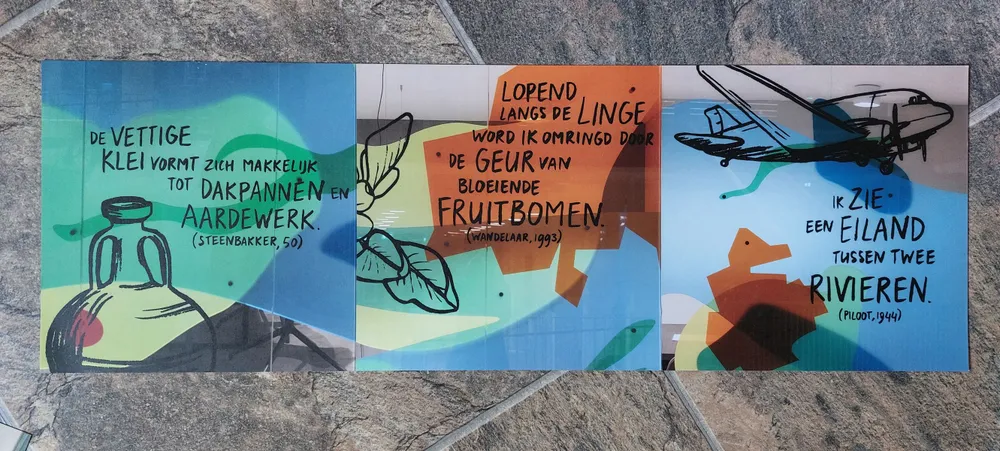 DE VETTIGE
KLEI VORMT ZICH MAKKELIJK
TOT DAKPANNEN EN
AARDEWERK.
(STEENBAKKER, 50)
LOPEND
LANGS DE LINGE
WORD IK OMRINGD DOOR
DE GEUR VAN
BLOEIENDE
FRUITBOMEN.
(WANDELAAR, 1993)
IK ZIE
EEN EILAND
TUSSEN TWEE
RIVIEREN.
(PILOOT, 1944)